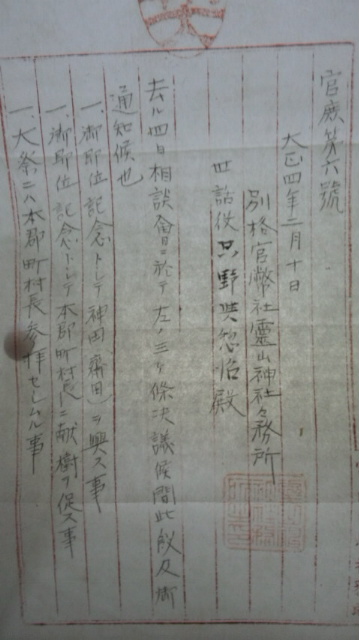 官庶第六號
大正四年二月十日
別格官幣社靈山神社々務所
世話役 只野與惣治殿
去ル四日相談會ニ於テ左ノ三ケ條決議候間此段及御
通知候也
一、御即位記念トシテ神田(齋田)ヲ興ス事
一、御即位記念トシテ本郡町村長ニ献樹ヲ促ス事
一、大祭ニハ本郡町村長参拝セシムル事